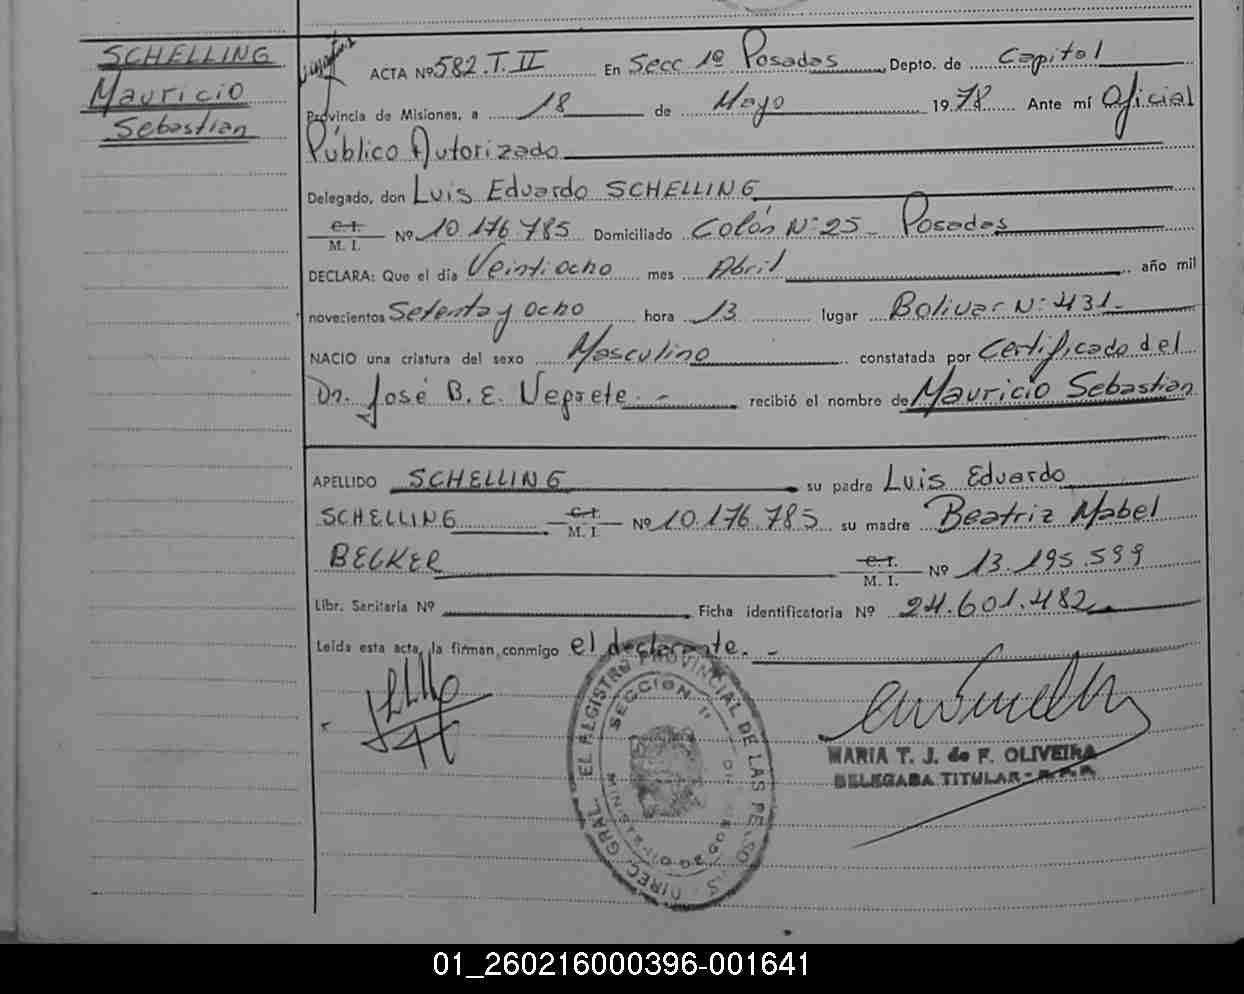 SCHELLING
Mauricio
Sebastian
ACTA Nº 582.T.II En Secc 1º Posadas, Depto. de Capital
Provincia de Misiones, a 18 de Mayo 1978 Ante mí Oficial
Público Autorizado
Delegado, don Luis Eduardo SCHELLING
C.I.
M. I. Nº 10.176.785 Domiciliado Colón Nº 25 - Posadas
DECLARA: Que el día Veintiocho mes Abril año mil
novecientos Setenta y ocho hora 13 lugar Bolivar Nº 431.-
NACIO una criatura del sexo Masculino constatada por Certificado del
Dr. José B. E. recibió el nombre de Mauricio Sebastian
APELLIDO SCHELLING su padre Luis Eduardo
SCHELLING C.I. M. I. Nº 10.176.785 su madre Beatriz Mabel
BECKER C.I. M. I. Nº 13.195.599
Libr. Sanitaria Nº Ficha identificatoria Nº 24.601.482
Leída esta acta, la firman conmigo el declarante. -
DIREC. GRAL. DEL REGISTRO PROVINCIAL DE LAS PERSONAS
SECCION
MARIA T. J. de F. OLIVEIRA
DELEGADA TITULAR - R.P.P.
01_260216000396-001641